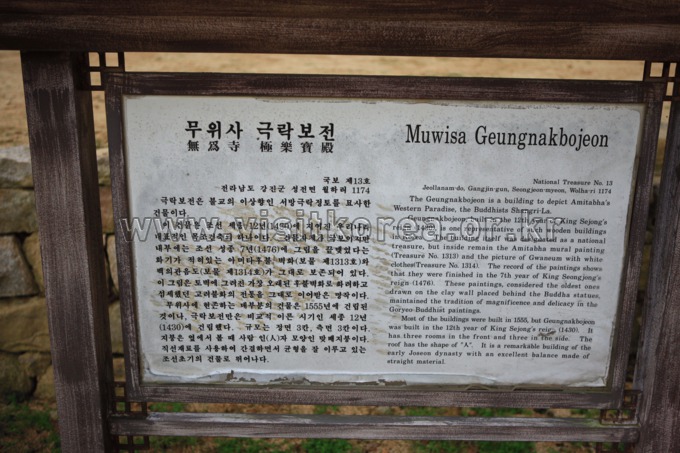 무위사 극락보전
無爲寺 極樂寶殿
국보 제13호
전라남도 강진군 성전면 월하리 1174
극락보전은 불교의 이상향인 서방극락정토를 묘사한
건물이다.
내부에는 조선 성종 7년(1476)에 그림을 끝맺었다는
화기가 적혀있는 아미타후불 벽화(보물 제1313호)와
백의관음도(보물 제1314호)가 그대로 보존되어 있다.
이 그림은 토벽에 그려진 가장 오래된 후불벽화로 화려하고
섬세했던 고려불화의 전통을 그대로 이어받은 명작이다.
무위사에 현존하는 대부분의 건물은 1555에 건립된
것이나, 극락보전만은 비교적 이른 시기인 세종 12년
(1430)에 건립했다. 규모는 정면 3칸, 측면 3칸이다.
지붕은 옆에서 볼 때 사람 인(人)자 모양인 맞배지붕이다.
직선재료를 사용하여 간결하면서 균형을 잘 이루고 있는
조선초기의 건물로 뛰어나다.
Muwisa Geungnakbojeon
National Treasure No. 13
Jeollanam-do, Gangjin-gun, Seongjeon-myeon, Wolha-ri 1174
The Geungnakbojeon is a building to depict Amitabha's
Western Paradise, the Buddhists Shangri-La.
Geungnakbojeon, built in the 12th year of King Sejong's
treasure, but inside remain the Amitabha mural painting
(Treasure No.1313) and the picture of Gwaneum with white
clothes(Treasure No.1314). The record of the paintings shows
that they were finished in the 7th year of King Seongjong's
reign (1476). These paintings, considered the oldest ones
drawn on the clay wall placed behind the Buddha statues,
maintained the tradition of magnificence and delicacy in the
Goryeo-Buddhist paintings.
Most of the buildings were built in 1555, but Geungnakbojeon
was built in the 12th year of King Sejong's reign (1430). It
has three rooms in the front and three in the side. The
roof has the shape of "A". It is a remarkable building of the
early Joseon dynasty with an excellent balance made of
straight material.
www.visitkorea.or.kr
www.visitkorea.or.kr
www.visitkorea.or.kr